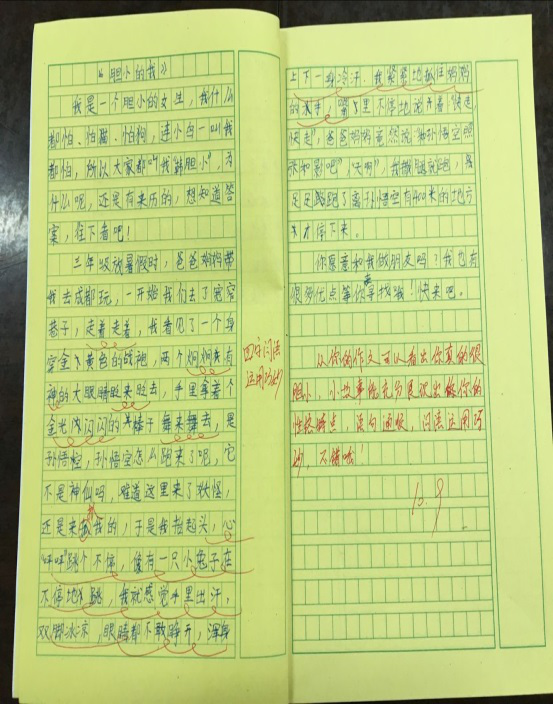 《胆小的我》
我是一个胆小的女生，我什么
都怕、怕猫、怕狗，连小鸟一叫我
都怕，所以大家都叫"我韩胆小"，为
什么呢，还是有来历的，想知道答
案，往下看吧！
三年级放暑假时，爸爸妈妈带
我去成都玩，一开始我们去了宽窄
巷子，走着走着，我看见了一个身
穿金黄色的战袍，两个炯炯有
神的大眼睛眨来眨去，手里拿着个
金光闪闪的棒子舞来舞去，是
孙悟空，孙悟空怎么跑来了呢，它
不是神仙吗，难道这里来了妖怪，
还是来抓我的，于是我抬起头，心
"呯呯"跳个不停，像有一只小兔子在
不停地跳，我就感觉手里出汗，
双脚冰凉，眼睛都不敢睁开，浑身
四字词语
运用巧妙
上下一身冷汗．我紧紧地抓住妈妈
的手，嘴里不停地说着"快走，
快走"，爸爸妈妈竟然说"和孙悟空照
张和影吧""天啊"，我撒腿就跑，足
足跑了离孙悟空有400米的地方
才停下来。
你愿意和我做朋友吗？我也有
很多优点等你来寻找哦！快来吧。
从你的作文可以看出你真的很
胆小，小故事能充分展现出你的
性格特点，语句通顺，词语运用巧
妙，不错哦！
12.9